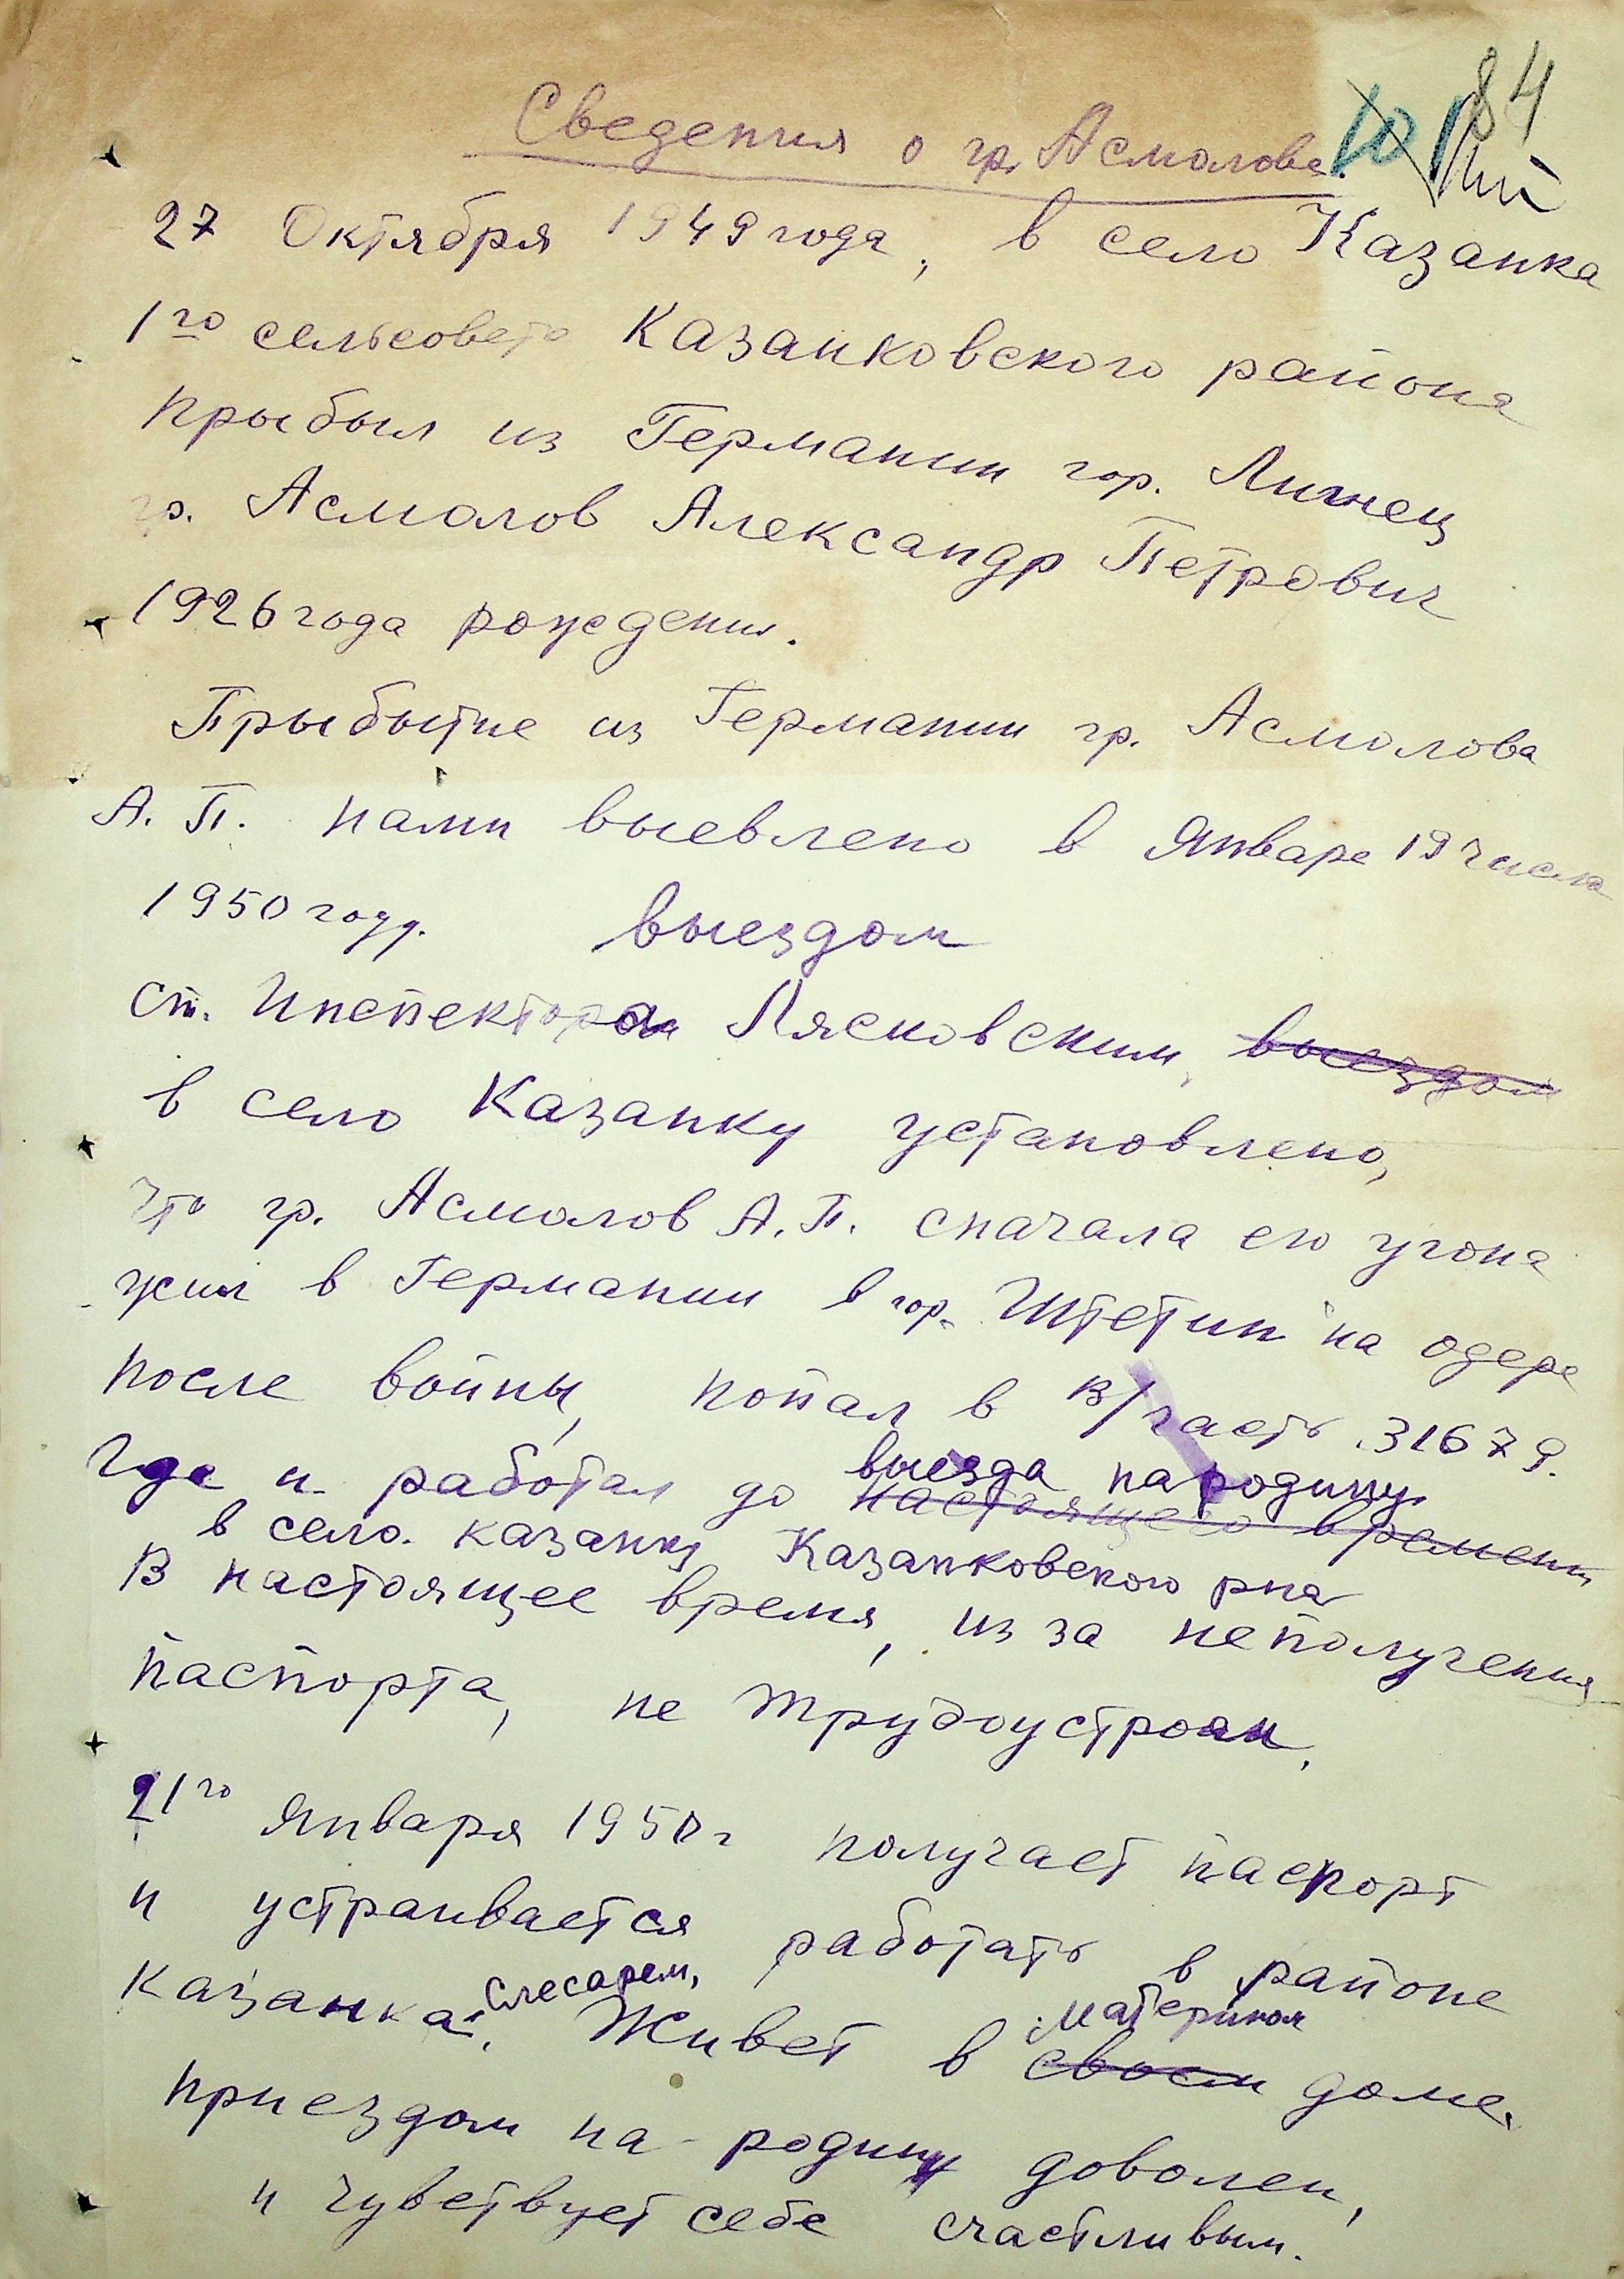 84
101
Сведения о гр. Асмолове.
27 Октября 1949 года, в село Казанка
1го сельсовета Казанковского района
прыбыл из Германии гор.
гр. Асмолов Александр Петрович
1926 года рождения.
Прыбытие из Германии гр. Асмолова
А. П. нами выевлено в Январе 19 числа
1950 году. выездом
ст. Инспектором Лясковским, выездом
в село Казанку установлено,
что гр. Асмолов А. П. сначала его угона
жил в Германии в гор. Штетин на одере
после войны, попал в в/часть 31679.
выезда на родину.
где и работал до настоящего времени
в село. казанку Казанковского рна
В настоящее время, из за неполучения
паспорта, не трудоустроан.
21го Января 1950 г получает паспорт
и устраивается работать в районе
Казанка слесарем, Живет в своем материном доме.
приездом на родину доволен,
и чувствует себе счастливым.